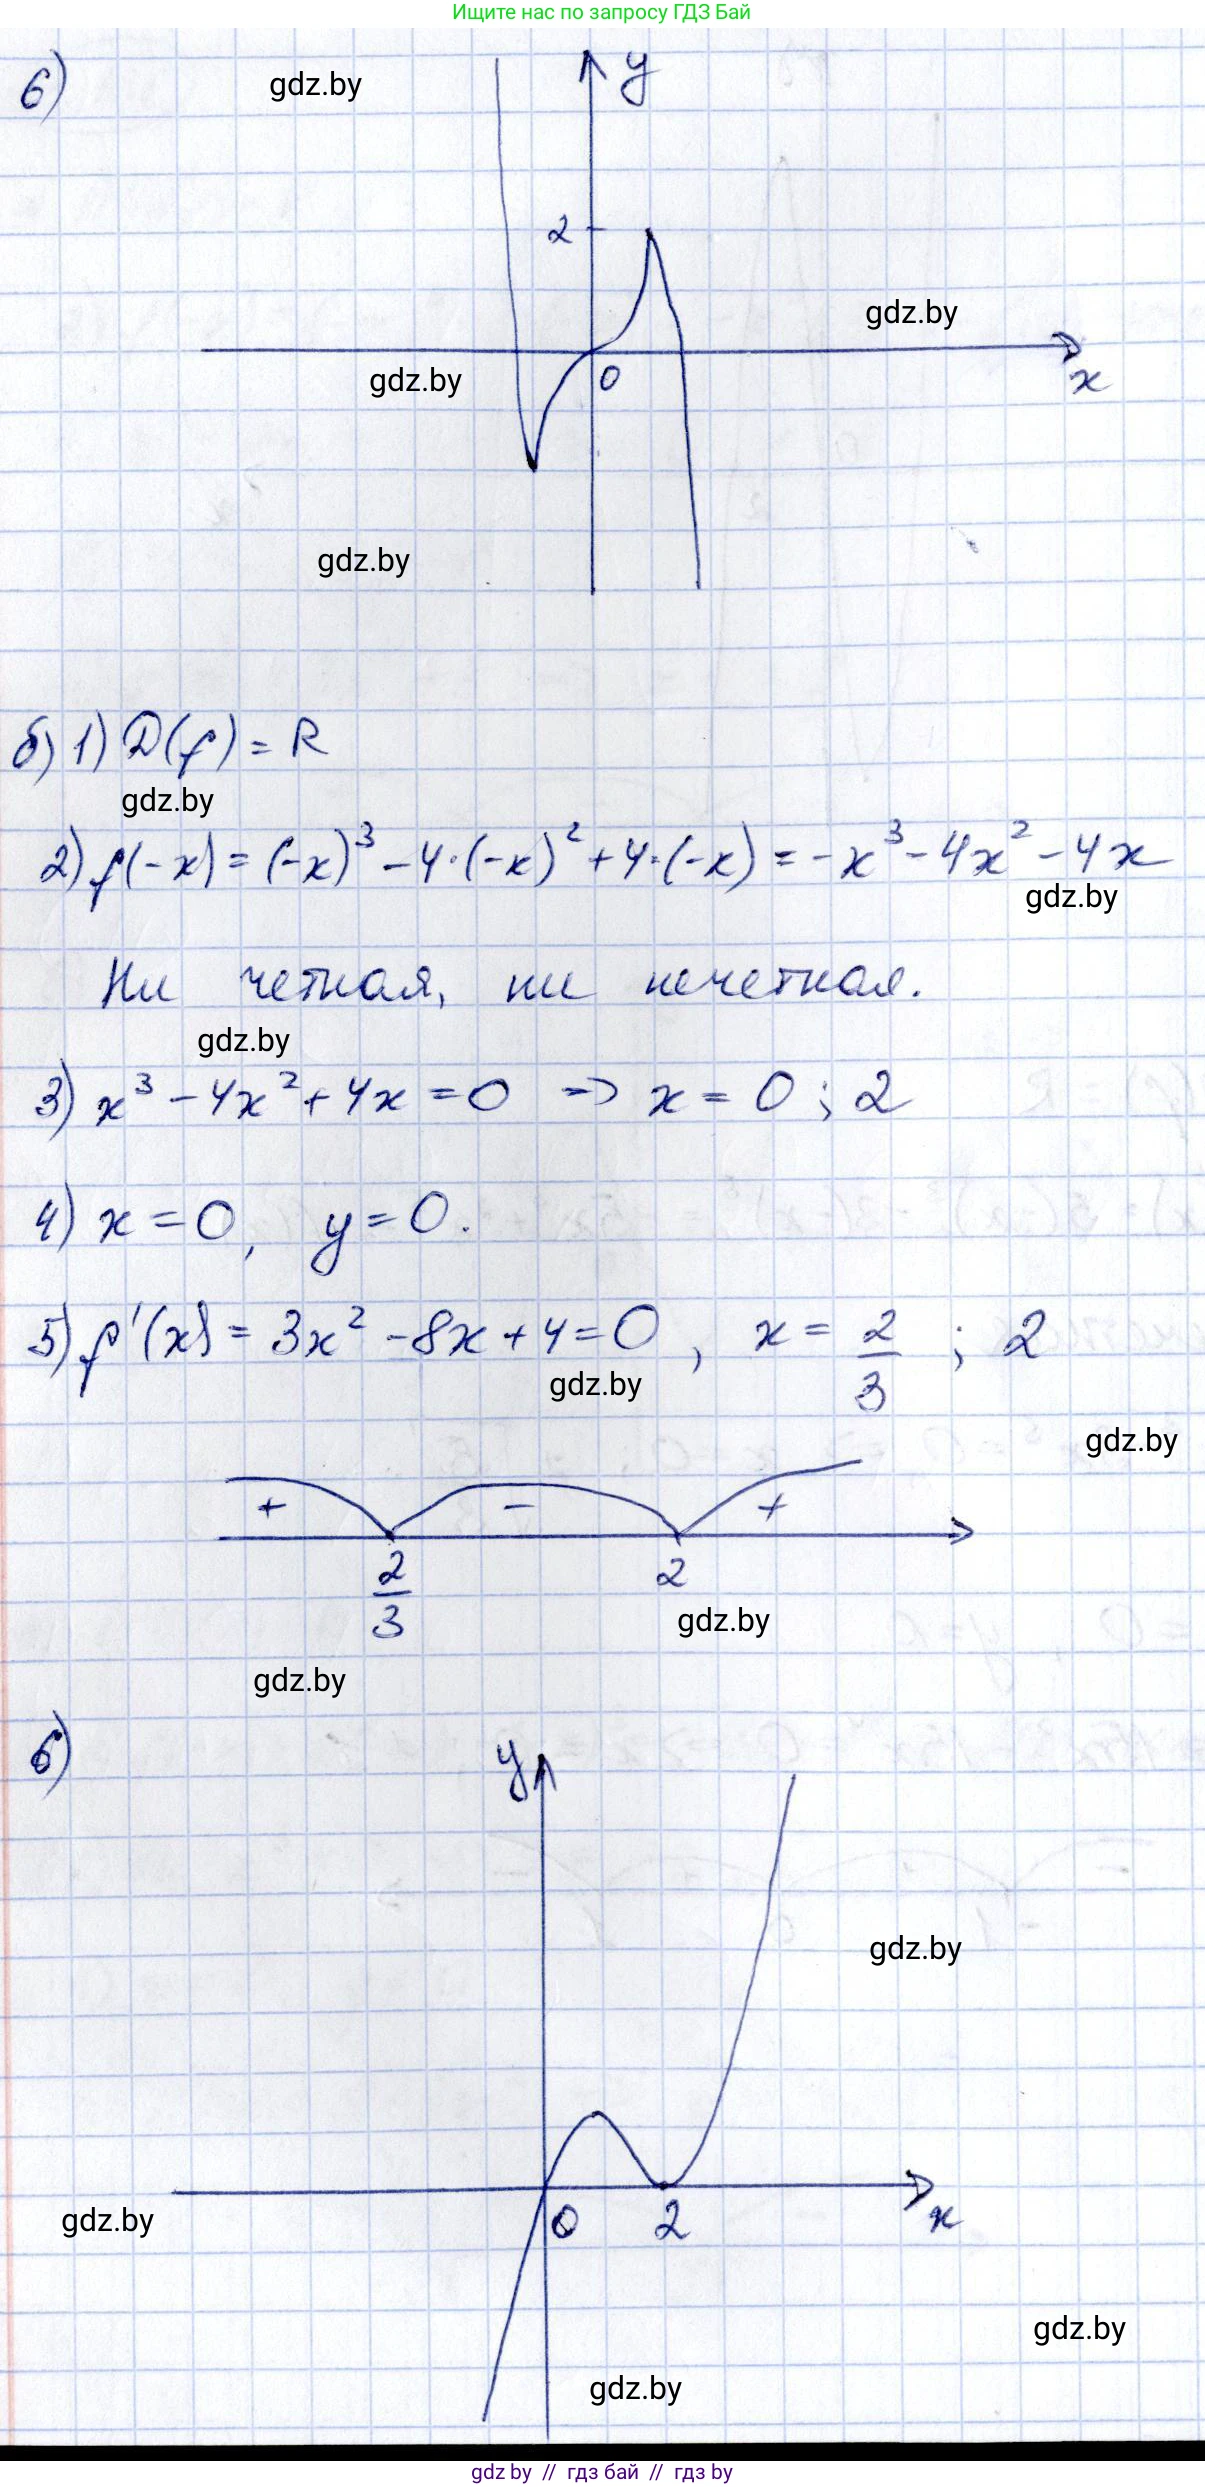 Ищите нас по запросу ГДЗ Бай
6)
gdz.by
y
2
gdz.by
0
gdz.by
x
gdz.by
б) 1) D(f) = R
gdz.by
2) f(-x) = (-x)³ - 4·(-x)² + 4·(-x) = -x³ - 4x² - 4x
gdz.by
Ни четная, ни нечетная.
gdz.by
3) x³ - 4x² + 4x = 0 => x = 0 ; 2
4) x = 0, y = 0.
5) f'(x) = 3x² - 8x + 4 = 0 , x = 2/3 ; 2
gdz.by
gdz.by
+ - +
2/3 2
gdz.by
gdz.by
6)
y
gdz.by
0 2 x
gdz.by
gdz.by
gdz.by
gdz by // гдз бай // гдз by